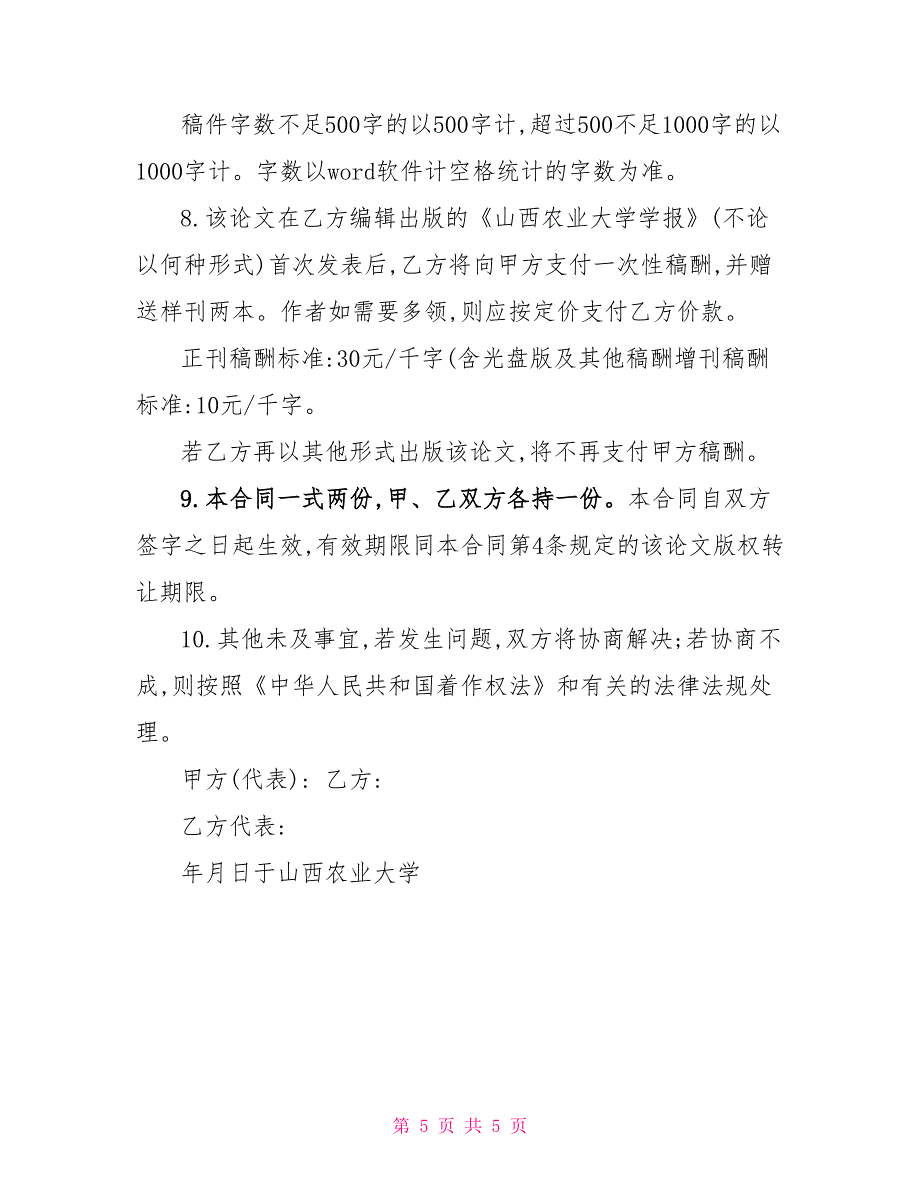 稿件字数不足500字的以500字计,超过500不足1000字的以
1000字计。字数以word软件计空格统计的字数为准。
8.该论文在乙方编辑出版的《山西农业大学学报》(不论
以何种形式)首次发表后,乙方将向甲方支付一次性稿酬,并赠
送样刊两本。作者如需要多领,则应按定价支付乙方价款。
正刊稿酬标准:30元/千字(含光盘版及其他稿酬增刊稿酬
标准:10元/千字。
若乙方再以其他形式出版该论文,将不再支付甲方稿酬。
9.本合同一式两份,甲、乙双方各持一份。本合同自双方
签字之日起生效,有效期限同本合同第4条规定的该论文版权转
让期限。
10.其他未及事宜,若发生问题,双方将协商解决;若协商不
成,则按照《中华人民共和国着作权法》和有关的法律法规处
理。
甲方(代表): 乙方:
乙方代表:
年月日于山西农业大学
第 5 页 共 5 页